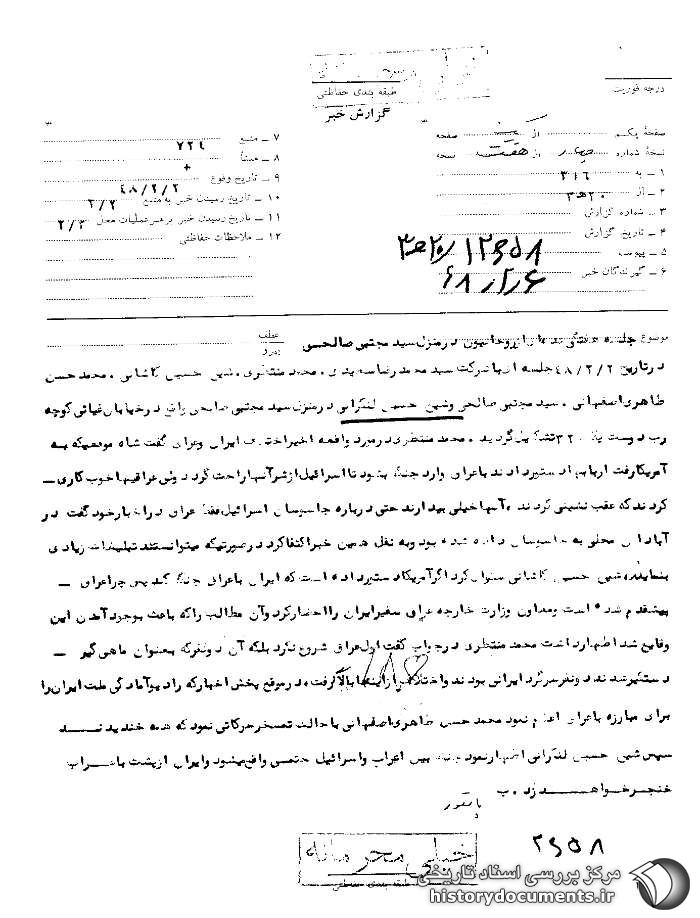 طبقه بندی حفاظتی
گزارش خبر
درجه فوریت
صفحهٔ یکم از صفحه
نسخهٔ شماره چهار از هفت نسخه
۱ – به ۳۱۶
۲ – از ۲۰ ه‍ ۳
۳ – شماره گزارش
۴ – تاریخ گزارش
۵ – پیوست
۶ – گیرندگان خبر
۷ – منبع ۷۲۴
۸ – منشأ +
۹ – تاریخ وقوع ۴۸/۲/۲
۱۰ – تاریخ رسیدن خبر به منبع ۲/۲
۱۱ – تاریخ رسیدن خبر برهبر عملیات محل ۲/۳
۱۲ – ملاحظات حفاظتی
موضوع جلسه هفتگی روحانیون در منزل سید مجتبی صالحی
عطف
پیرو
در تاریخ ۴۸/۲/۲ جلسه ای با شرکت سید محمد رضا سعیدی ، محمد منتظری ، شیخ حسین کاشانی ، محمد حسن
طاهری اصفهانی ، سید مجتبی صالحی وشیخ حسین لنکرانی در منزل سید مجتبی صالحی واقع در خیابان غیاثی کوچه
تشکیل گردید . محمد منتظری در مورد واقعه اخیر اختلاف ایران وعراق گفت شاه موقعیکه به
آمریکا رفت اربابها دستور دادند با عراق وارد جنگ بشود تا اسرائیل از شر آنها راحت گردد ولی عراقیها خوب کاری
کردند که عقب نشینی کردند ، آنها خیلی بیدارند حتی درباره جاسوسان اسرائیل فقط عراق در اخبار خود گفت در
آبادان محلی به جاسوسان داده شده بود وبه نقل همین خبر اکتفا کرد در صورتیکه میتوانستند تبلیغات زیادی
بنمایند، شیخ حسین کاشانی سئوال کرد اگر آمریکا دستور داده است که ایران با عراق جنگ کند پس چرا عراق
پیشقدم شده است ومعاون وزارت خارجه عراق سفیر ایران را احضار کرد وآن مطالب را که باعث بوجود آمدن این
وقایع شد اظهار داشت محمد منتظری در جواب گفت اول عراق شروع نکرد بلکه آن دو نفر که بعنوان ماهی گیر
دستگیر شدند دو نفر سرگرد ایرانی بودند واختلاف از اینجا بالا گرفت ، در موقع پخش اخبار که رادیو آمادگی ملت ایران را
برای مبارزه با عراق اعلام نمود محمد حسن طاهری اصفهانی با حالت تمسخر حرکاتی نمود که همه خندیدند
سپس شیخ حسین لنکرانی اظهار نمود جنگ بین اعراب واسرائیل حتمی واقع میشود وایران از پشت به اعراب
خنجر خواهد زد . ب
خیلی محرمانه
طبقه بندی حفاظتی
مرکز بررسی اسناد تاریخی
historydocuments.ir